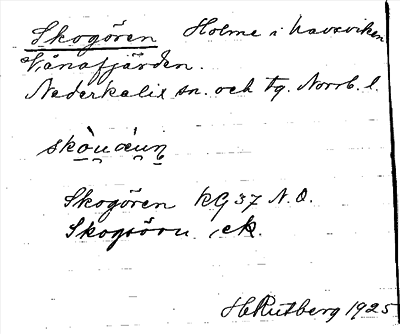 Skogören Holme i havsviken
Vånafjärden.
Nederkalix sn. och tg. Norrb. l.
Skogören KG 37 N.O.
Skogsörn ck.
H Rutberg 1925